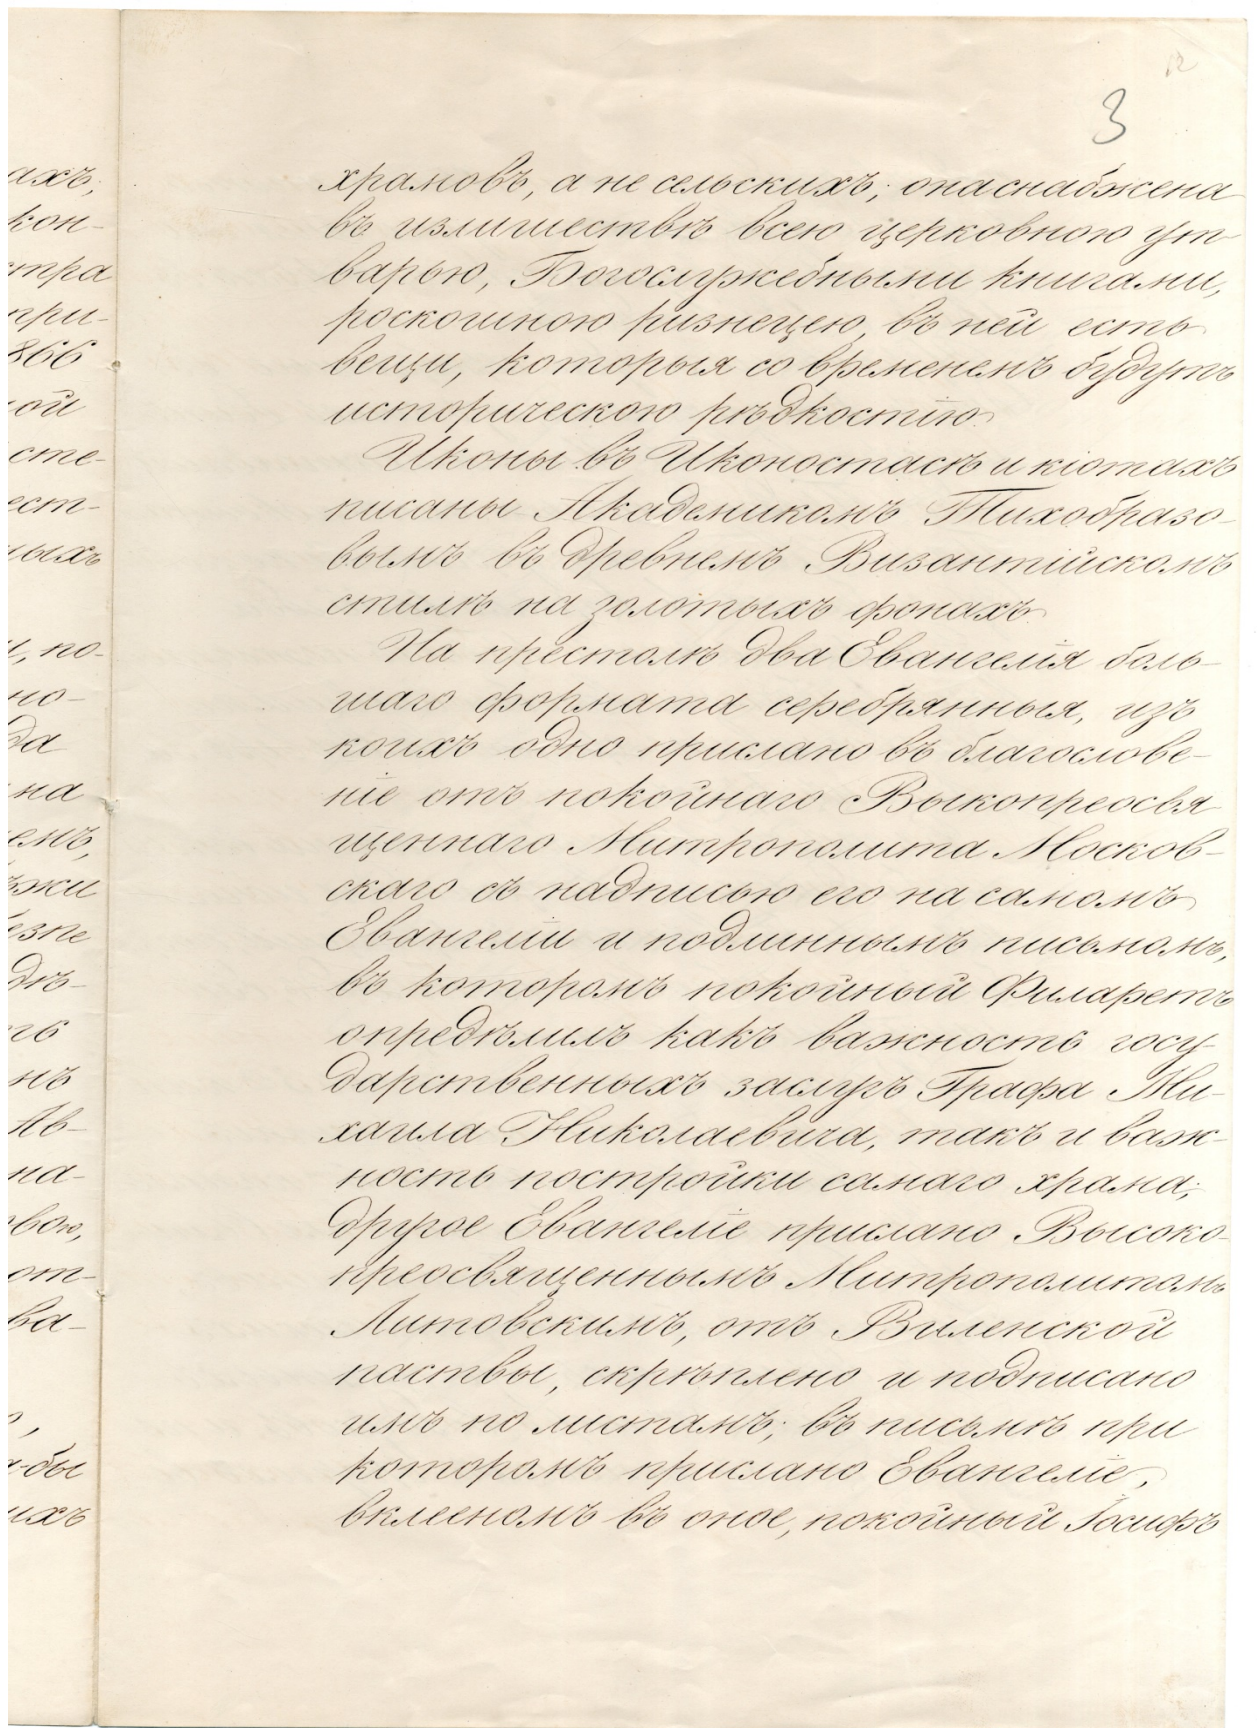 12
3
храмовъ, а не сельскихъ; она снабжена
въ излишествѣ всею церковною ут-
варью, Богослужебными книгами,
роскошною ризнецею, въ ней есть
вещи, которыя со временемъ будутъ
историческою рѣдкостію.
Иконы въ Иконостасѣ и кіотахъ
писаны Академикомъ Тихобразо-
вымъ въ древнемъ Византійскомъ
стилѣ на золотыхъ фонахъ.
На престолѣ два Евангелія боль-
шаго формата серебрянныя, изъ
коихъ одно прислано въ благослове-
ніе отъ покойнаго Выкопреосвя
щеннаго Митрополита Москов-
скаго съ надписью его на самомъ
Евангеліи и подлиннымъ письмомъ,
въ которомъ покойный Филаретъ
опредѣлилъ какъ важность госу
дарственныхъ заслугъ Графа Ми-
хаила Николаевича, такъ и важ-
ность постройки самаго храма;
другое Евангеліе прислано Высоко-
преосвященнымъ Митрополитомъ
Литовскимъ, отъ Виленской
паствы, скрѣплено и подписано
имъ по листамъ; въ письмѣ при
которомъ прислано Евангеліе,
вклееномъ въ оное, покойный Іосифъ
ахъ;
кон-
тра
при-
866
ой
сте-
ест-
ыхъ
и, по-
но-
да
на
емъ,
жи
езпе
дѣ-
гъ
нъ
Ав-
на-
вою,
от-
ва-
бы
ихъ